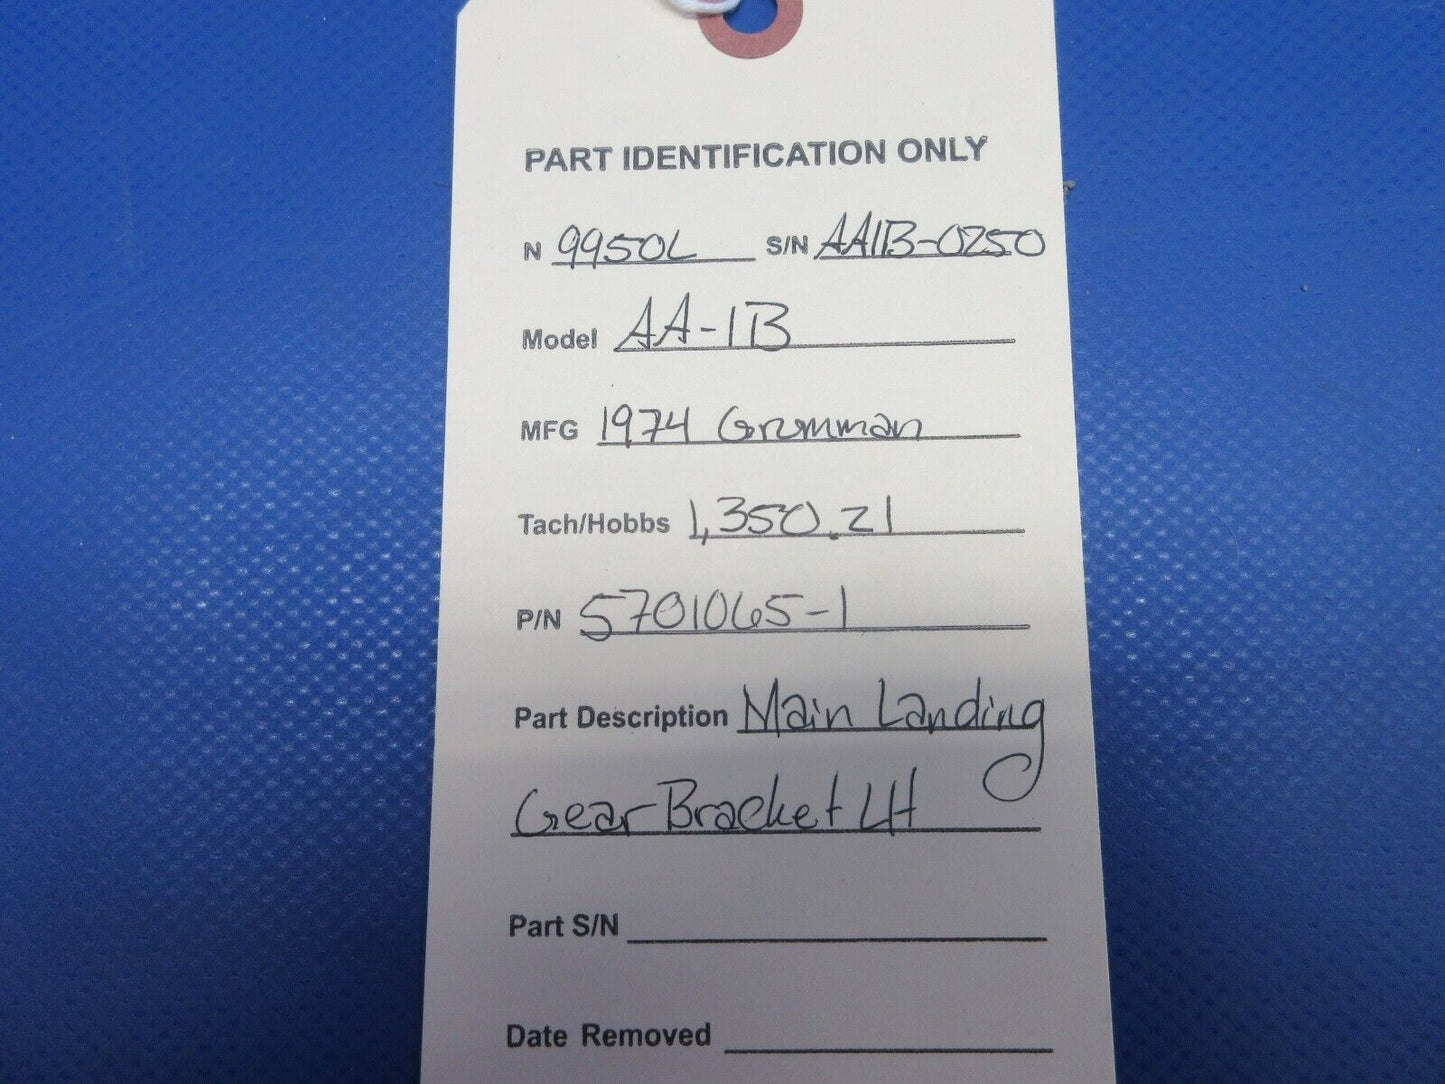 PART IDENTIFICATION ONLY
N 9950L S/N AA1B-0250
Model AA-1B
MFG 1974 Grumman
Tach/Hobbs 1,350.21
P/N 5701065-1
Part Description Main Landing
Gear Bracket LH
Part S/N
Date Removed